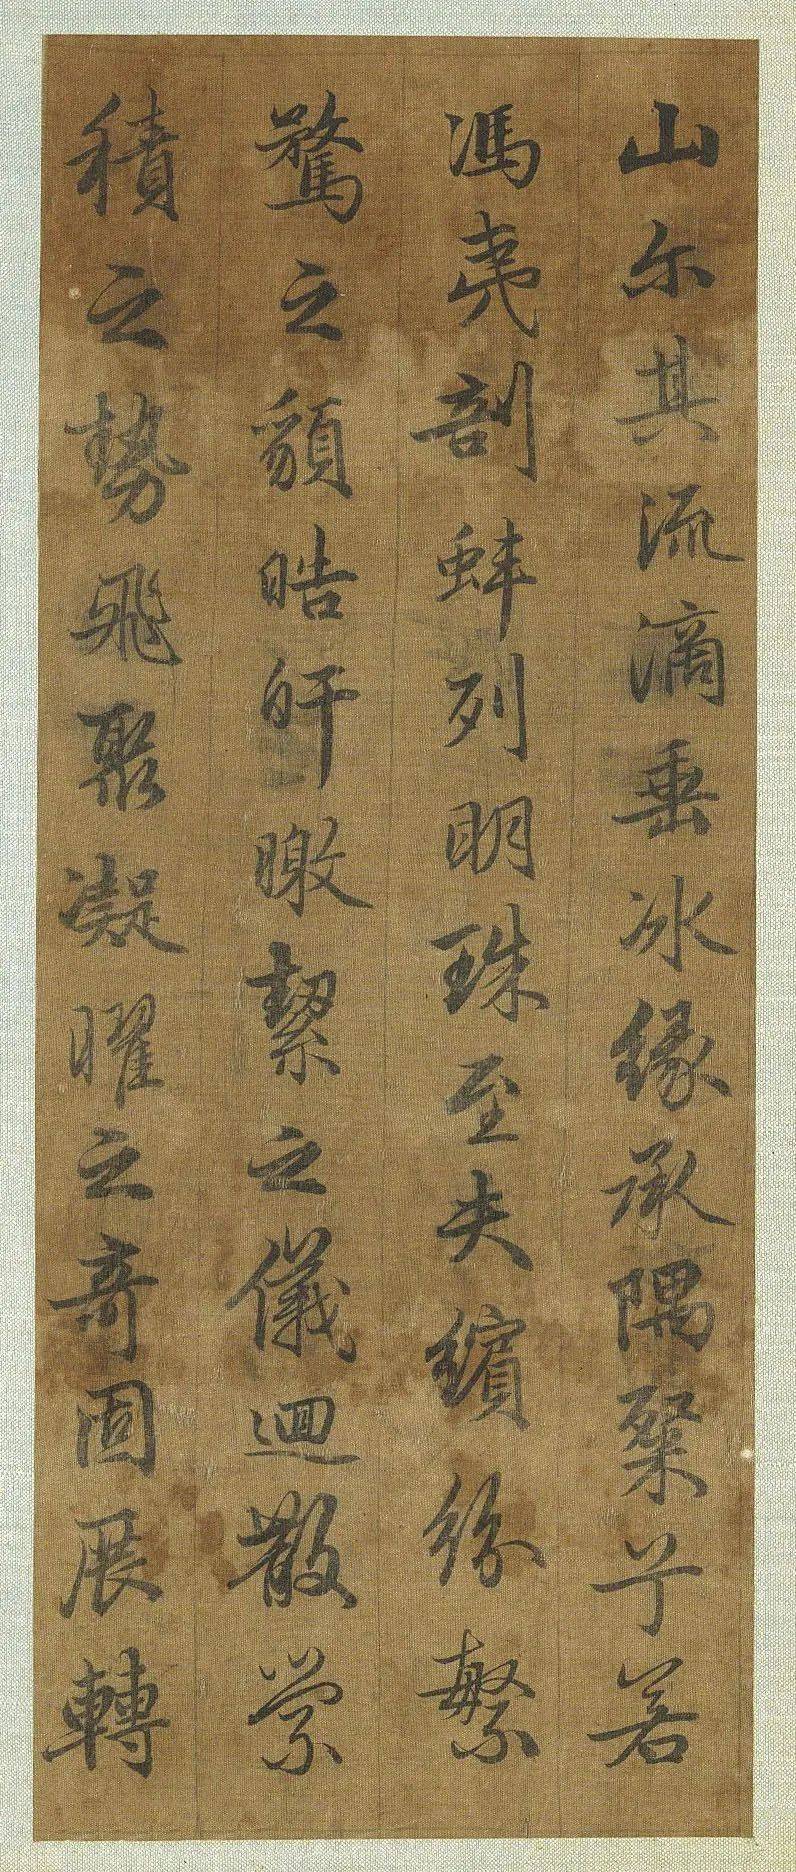 山尔其流滴垂冰缘承隅粲兮若
馮夷剖蚌列明珠至夫繽紛繁
鶩之貌皓皔曒絜之儀迴散縈
積之勢飛聚凝曜之奇固展轉